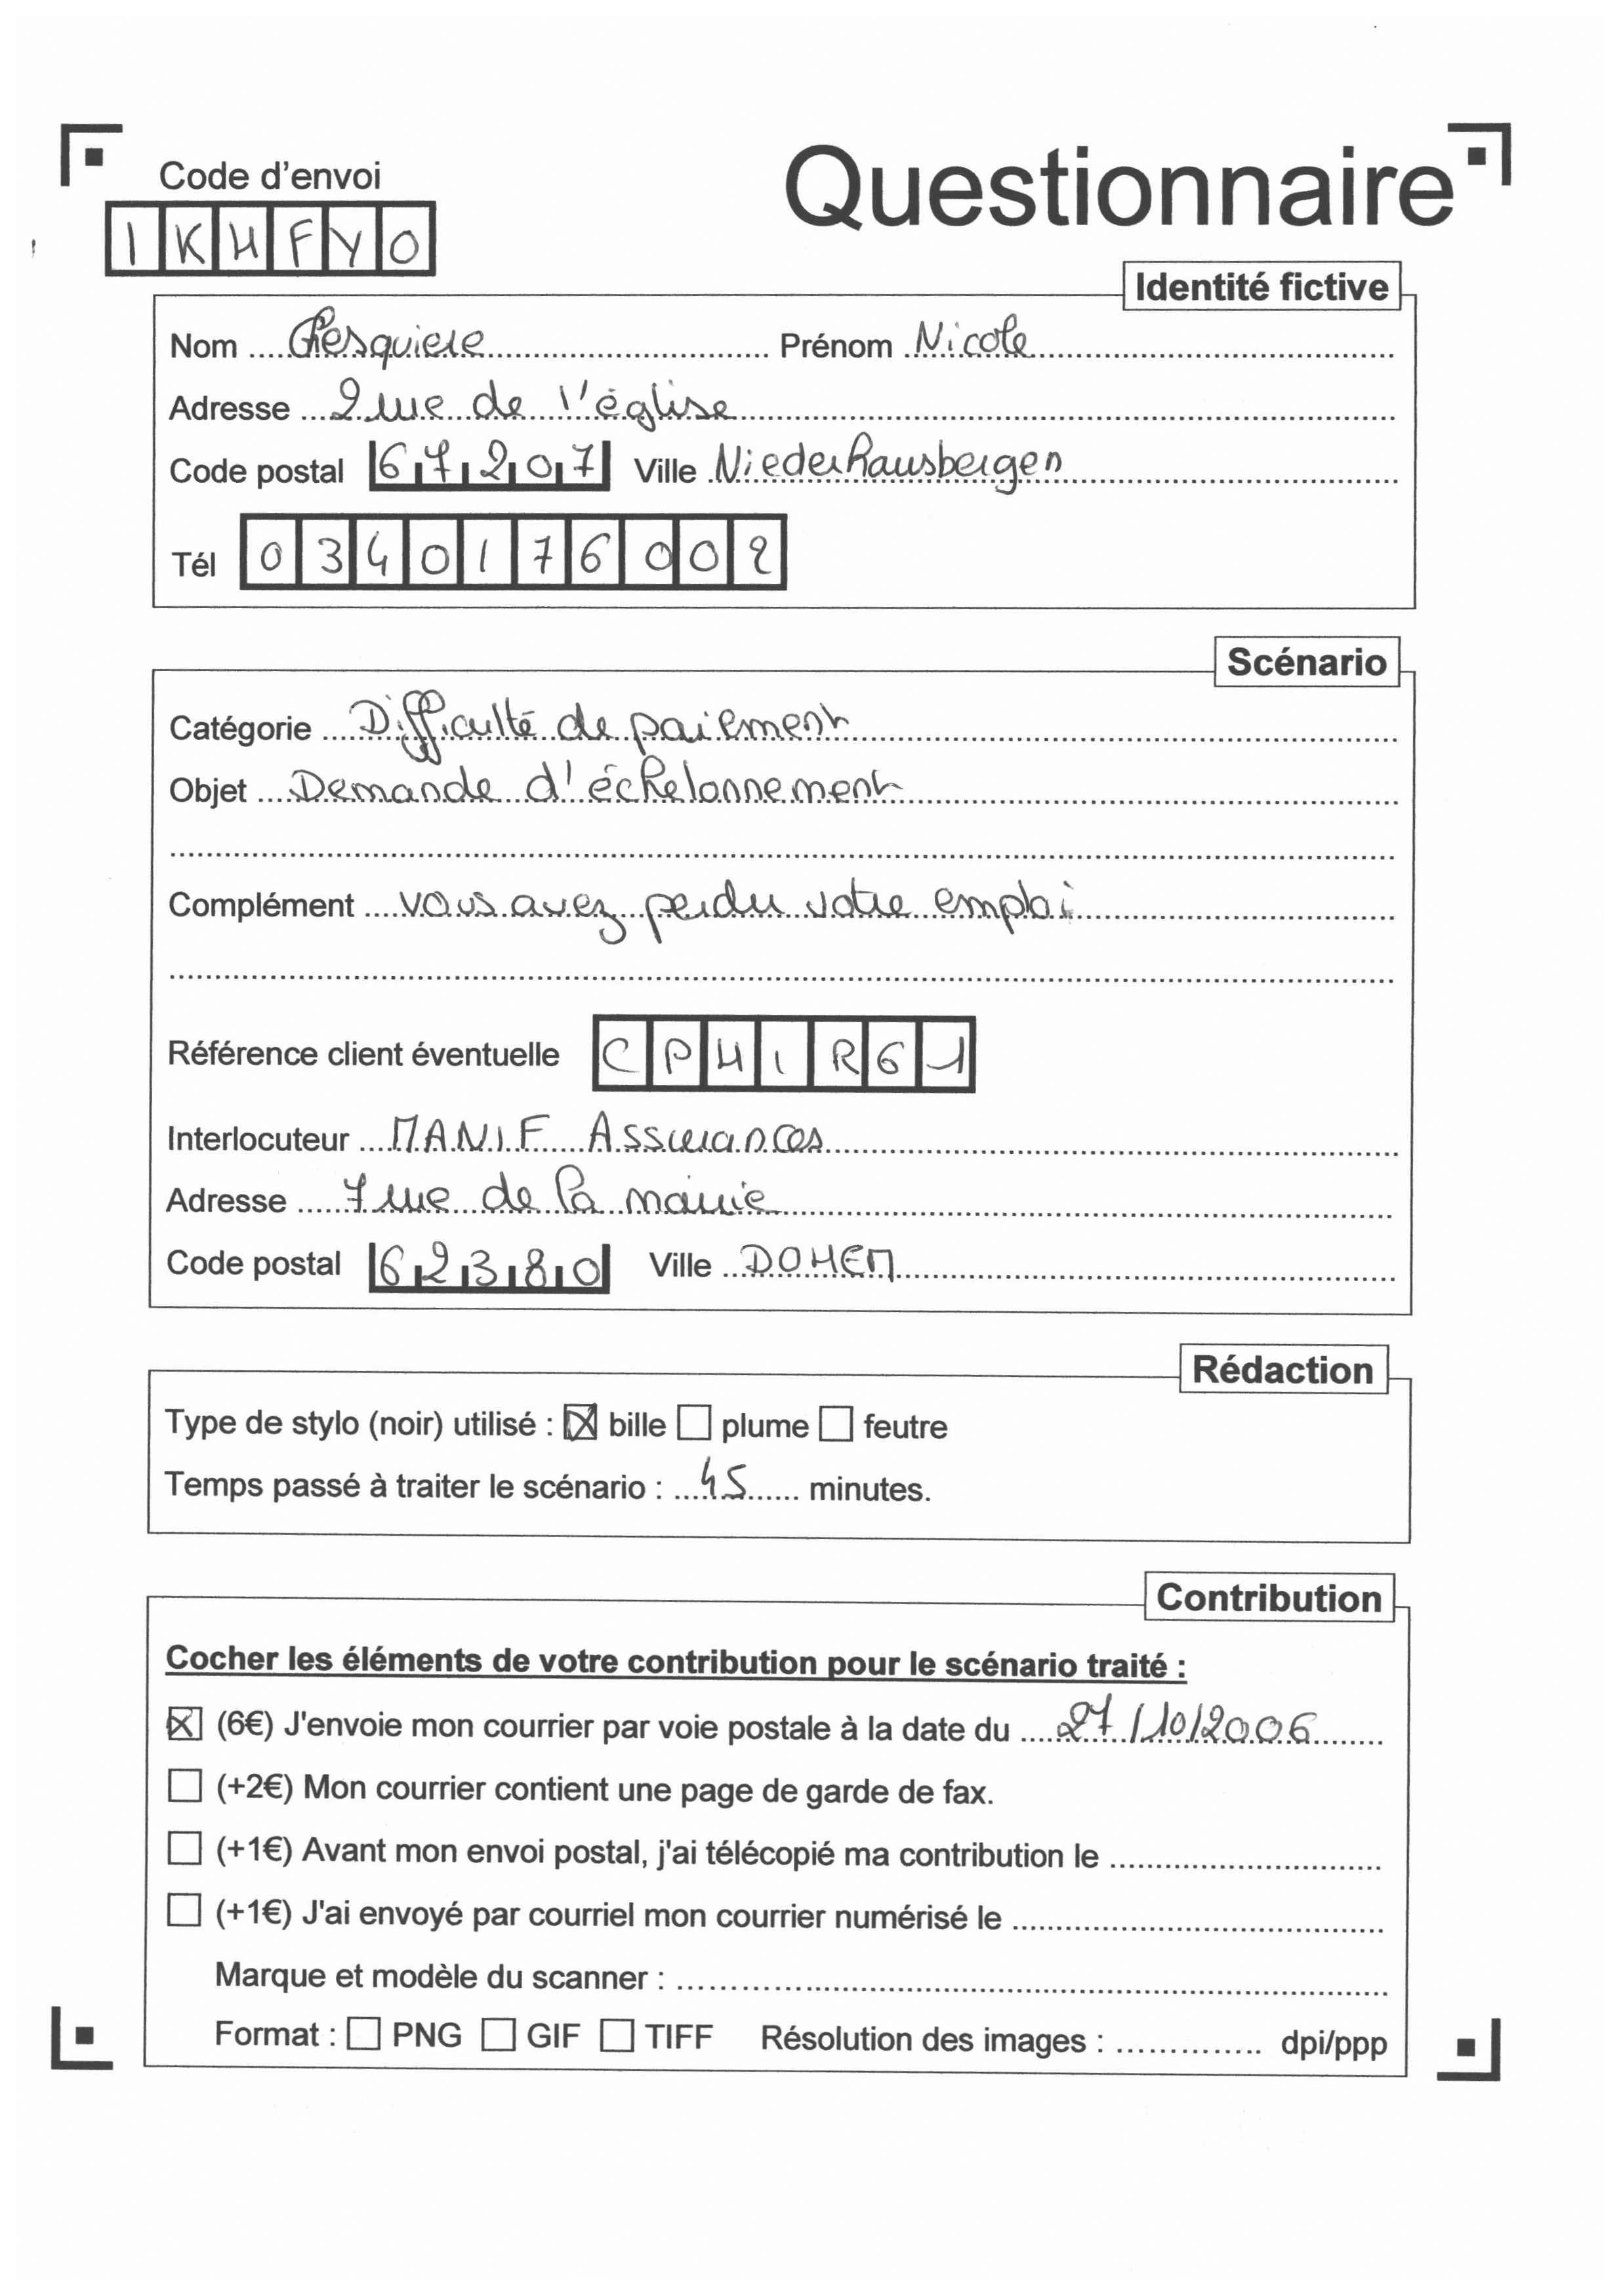 Code d'envoi
Questionnaire
IKHFYO
Identité fictive
Nom Prénom Nicole
Adresse 2 rue de l'église
Code postal 67207 Ville Niederhausbergen
Tél 0340176002
Scénario
Catégorie Difficulté de paiement
Objet Demande d'échelonnement
Complément vous avez perdu votre emploi
Référence client éventuelle CPHIRG1
Interlocuteur MANIF Assurances
Adresse 7 rue de la mairie
Code postal 62380 Ville DOHEM
Rédaction
Type de stylo (noir) utilisé : bille plume feutre
Temps passé à traiter le scénario : 45 minutes.
Contribution
Cocher les éléments de votre contribution pour le scénario traité :
(6€) J'envoie mon courrier par voie postale à la date du 27/10/2006
(+2€) Mon courrier contient une page de garde de fax.
(+1€) Avant mon envoi postal, j'ai télécopié ma contribution le
(+1€) J'ai envoyé par courriel mon courrier numérisé le
Marque et modèle du scanner :
Format : PNG GIF TIFF Résolution des images : dpi/ppp